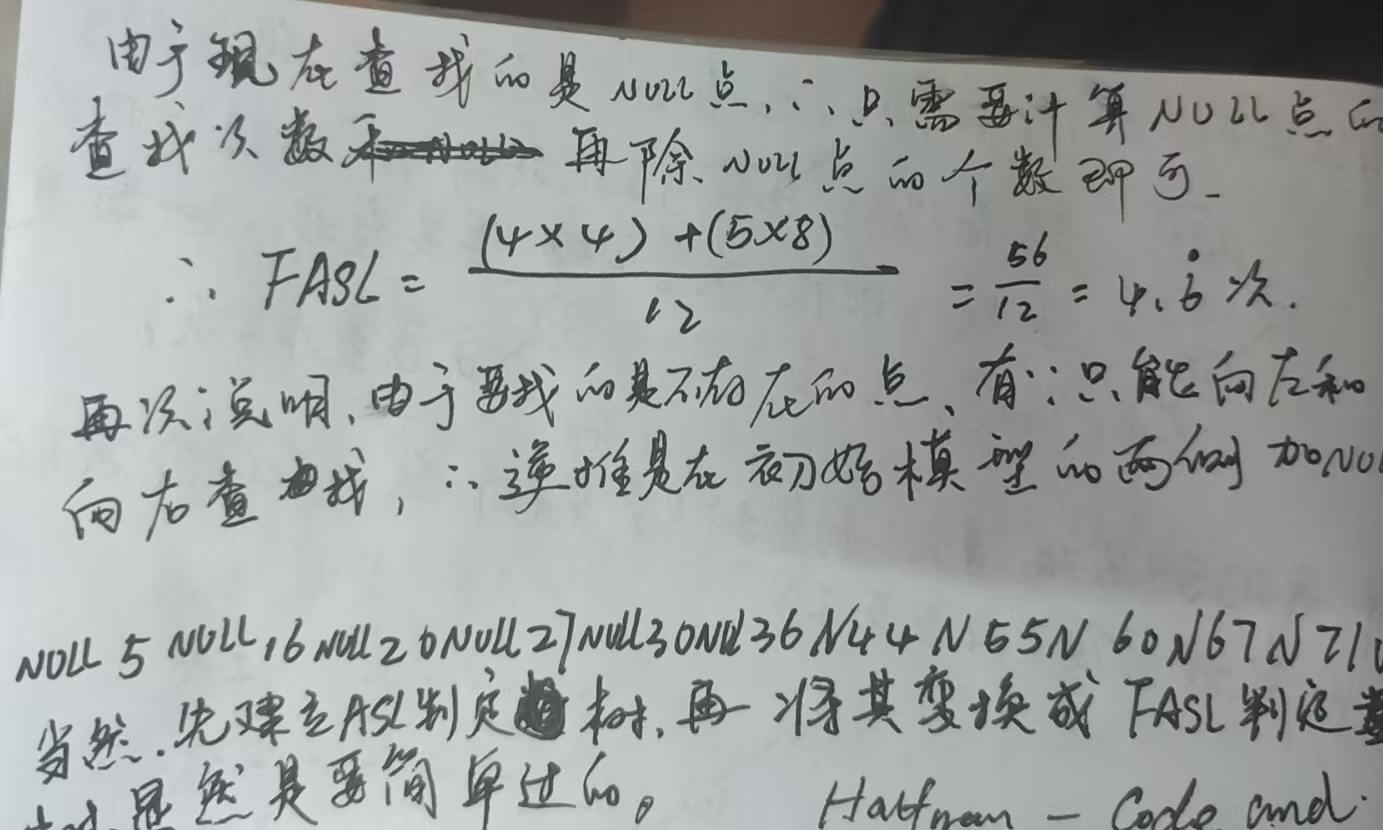 由于现在查找的是NULL点,∴只需要计算NULL点的
查找次数再除NULL点的个数即可.
∴ FASL = (4×4)+(5×8) / 12 = 56/12 = 4.6̇ 次.
再次说明,由于要找的是不存在的点,有∵只能向左和
向右查找,∴逆推是在初始模型的两侧加NU
NULL 5 NULL 16 NULL 20 NULL 27 NULL 30 NULL 36 N 44 N 55 N 60 N 67 N 71
当然.先建立ASL判定树,再将其变换成FASL判定
显然是要简单过的。
Haffman - Code and